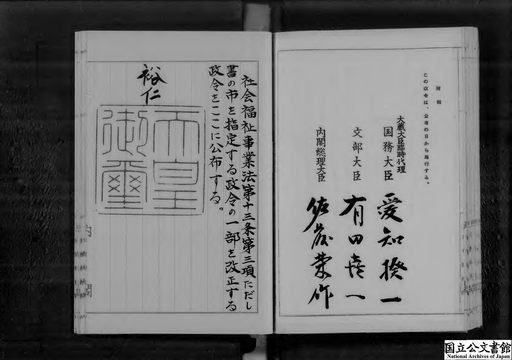 社会福祉事業法第十三条第三項ただし
書の市を指定する政令の一部を改正する
政令をここに公布する。
裕仁
天皇
御璽
附則
この政令は、公布の日から施行する。
大蔵大臣臨時代理
国務大臣 愛知揆一
文部大臣 有田喜一
内閣総理大臣 佐藤栄作
国立公文書館
National Archives of Japan